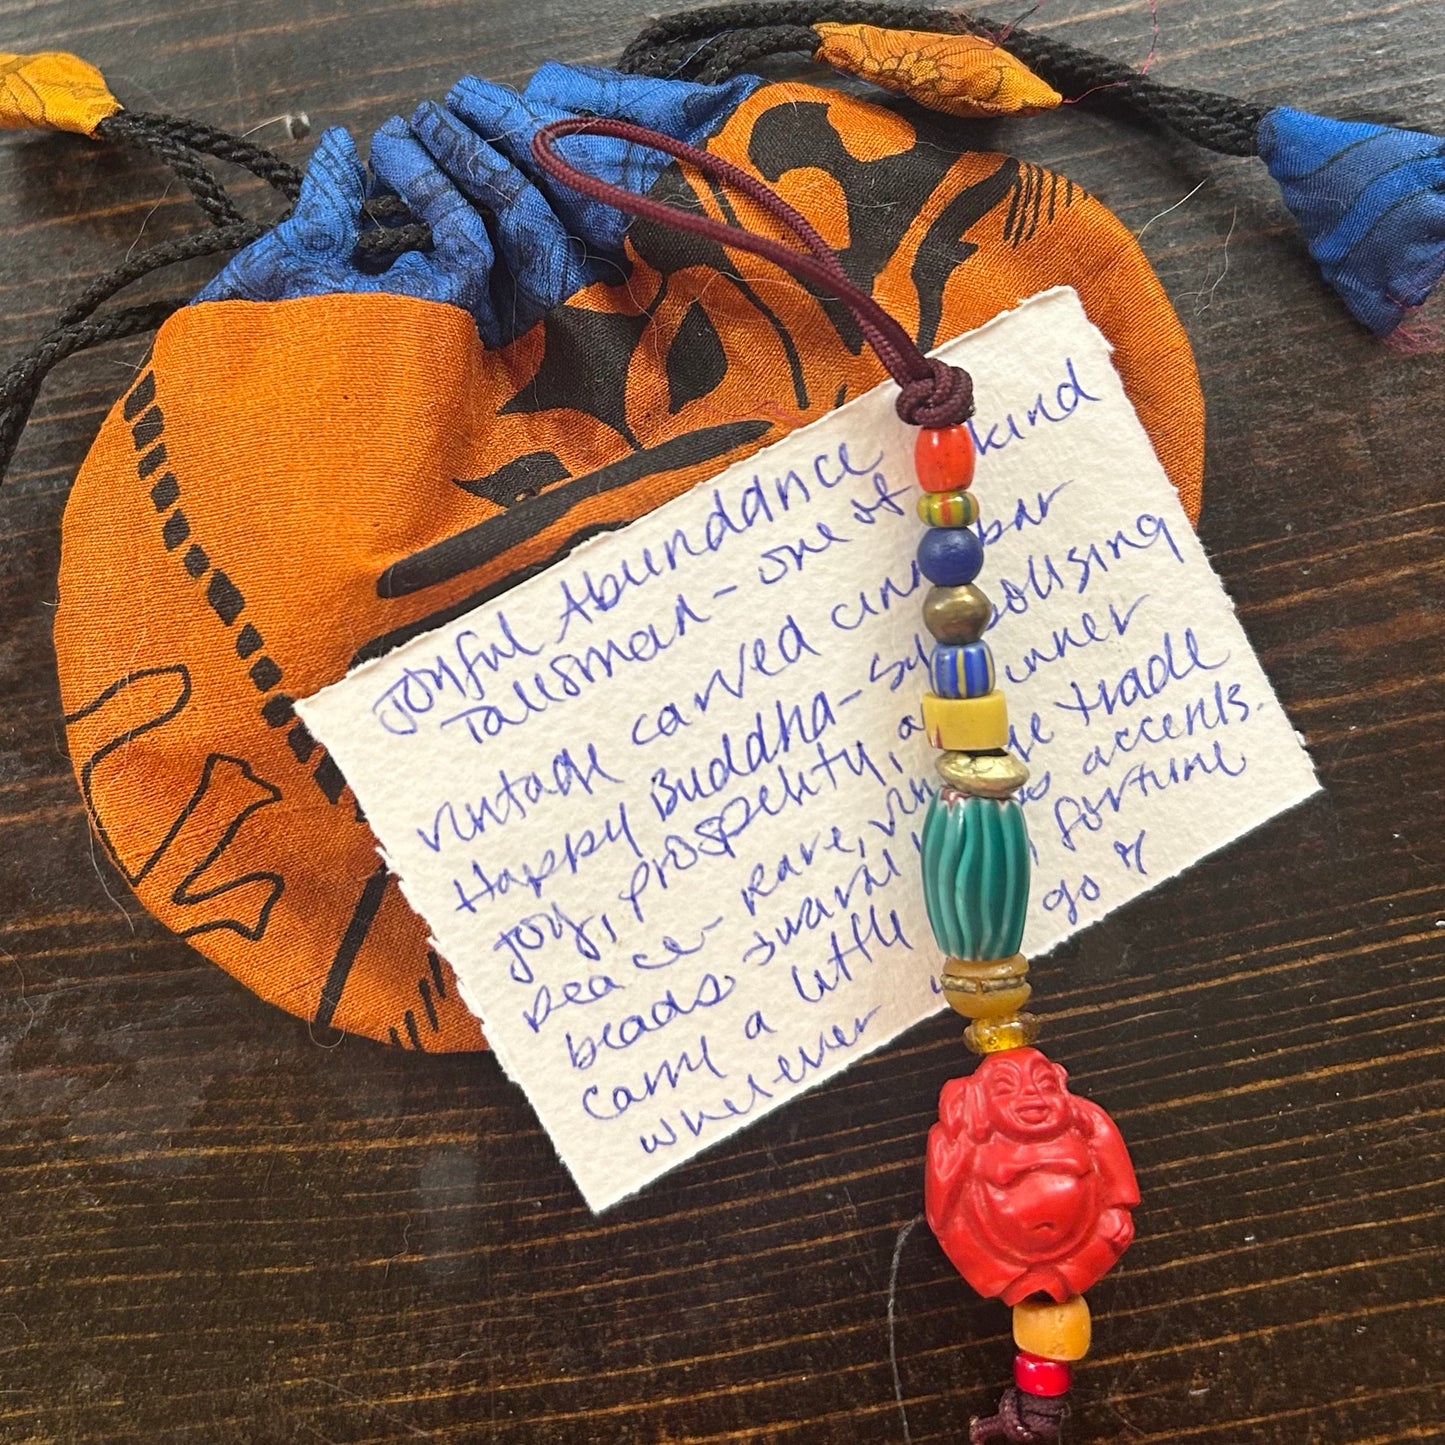 Joyful Abundance
Talisman - one of kind
vintage carved cinnabar
Happy Buddha - symbolising
joy, prosperity, a inner
peace - rare, vintage trade
beads accents.
carry a little fortune
wherever go